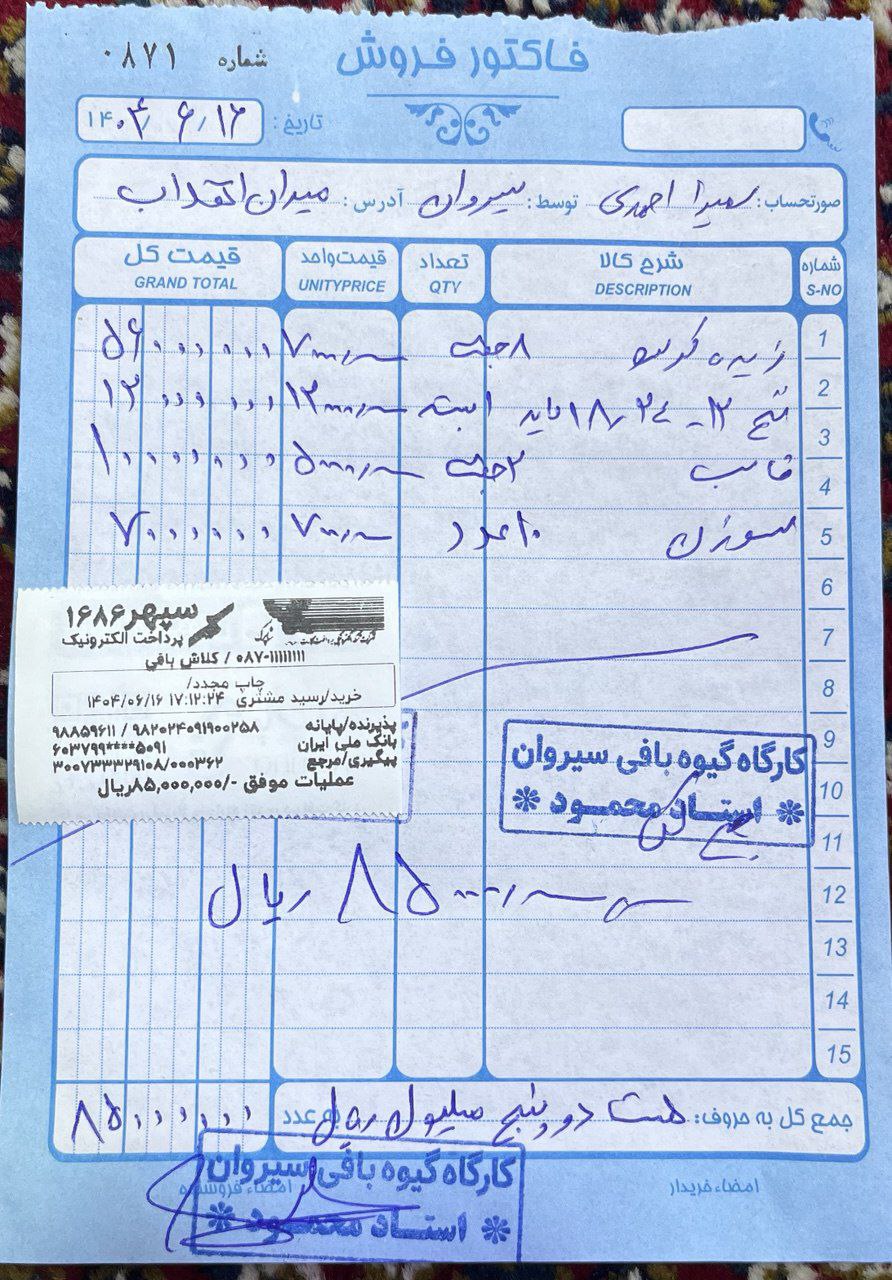 فاکتور فروش
شماره ۰۸۷۱
تاریخ: ۱۴۰۴/۶/۱۶
صورتحساب: سمیرا احمدی توسط: سیروان آدرس: میدان انقلاب
شماره شرح کالا تعداد قیمت واحد قیمت کل
S-NO DESCRIPTION QTY UNITYPRICE GRAND TOTAL
1 زیره ۸ جفت ۷۰۰۰/۰۰۰ ۵۶۰۰۰۰۰۰
2 نخ ۱۸/۲۴ ۱ بسته ۱۲۰۰۰/۰۰۰ ۱۲۰۰۰۰۰۰
3
4 قالب ۲ جفت ۵۰۰۰/۰۰۰ ۱۰۰۰۰۰۰۰
5 سوزن ۱۰ عدد ۷۰۰/۰۰۰ ۷۰۰۰۰۰۰
6
7
8
9
10
11
12
13
14
15
سپهر ۱۶۸۶
پرداخت الکترونیک
۰۸۷-۱۱۱۱۱۱۱۱ / کلاش بافي
چاپ مجدد/
خرید/رسید مشتری ۱۴۰۴/۰۶/۱۶ ۱۷:۱۲:۲۴
پذیرنده/پایانه ۹۸۲۰۲۴۰۹۱۹۰۰۲۵۸ / ۹۸۸۵۹۶۱۱
بانک ملی ایران ۶۰۳۷۹۹****۵۰۹۱
پیگیری/مرجع ۳۰۰۷۳۳۳۲۹۱۰۸/۰۰۰۳۶۲
عملیات موفق -/۸۵,۰۰۰,۰۰۰ریال
کارگاه گیوه بافی سیروان
استاد محمود
جمع کل
۸۵۰۰۰/۰۰۰ ریال
جمع کل به حروف: هشتاد و پنج میلیون ریال عدد ۸۵۰۰۰۰۰۰
امضاء خریدار امضاء فروشنده
کارگاه گیوه بافی سیروان
استاد محمود